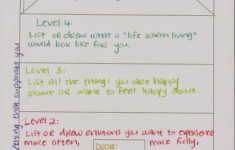 Level 4:
List or draw what a "life worth living"
would look like for you.
Level 3:
List all the things you are happy
about or want to feel happy about.
Level 2:
List or draw emotions you want to experience
more often, more fully,
Door:
that supports you